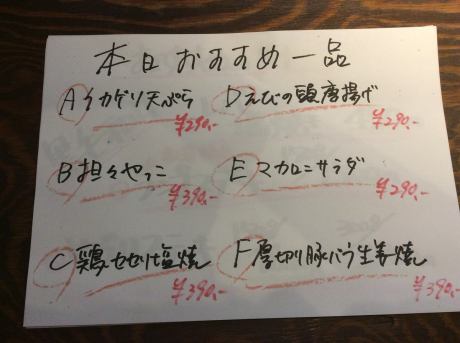 本日おすすめ一品
Aイカゲソ天ぷら
¥290,-
Dえびの頭唐揚げ
¥290,-
B担々やっこ
¥390,-
Eマカロニサラダ
¥290,-
C鶏セセリ塩焼
¥390,-
F厚切り豚バラ生姜焼
¥390,-